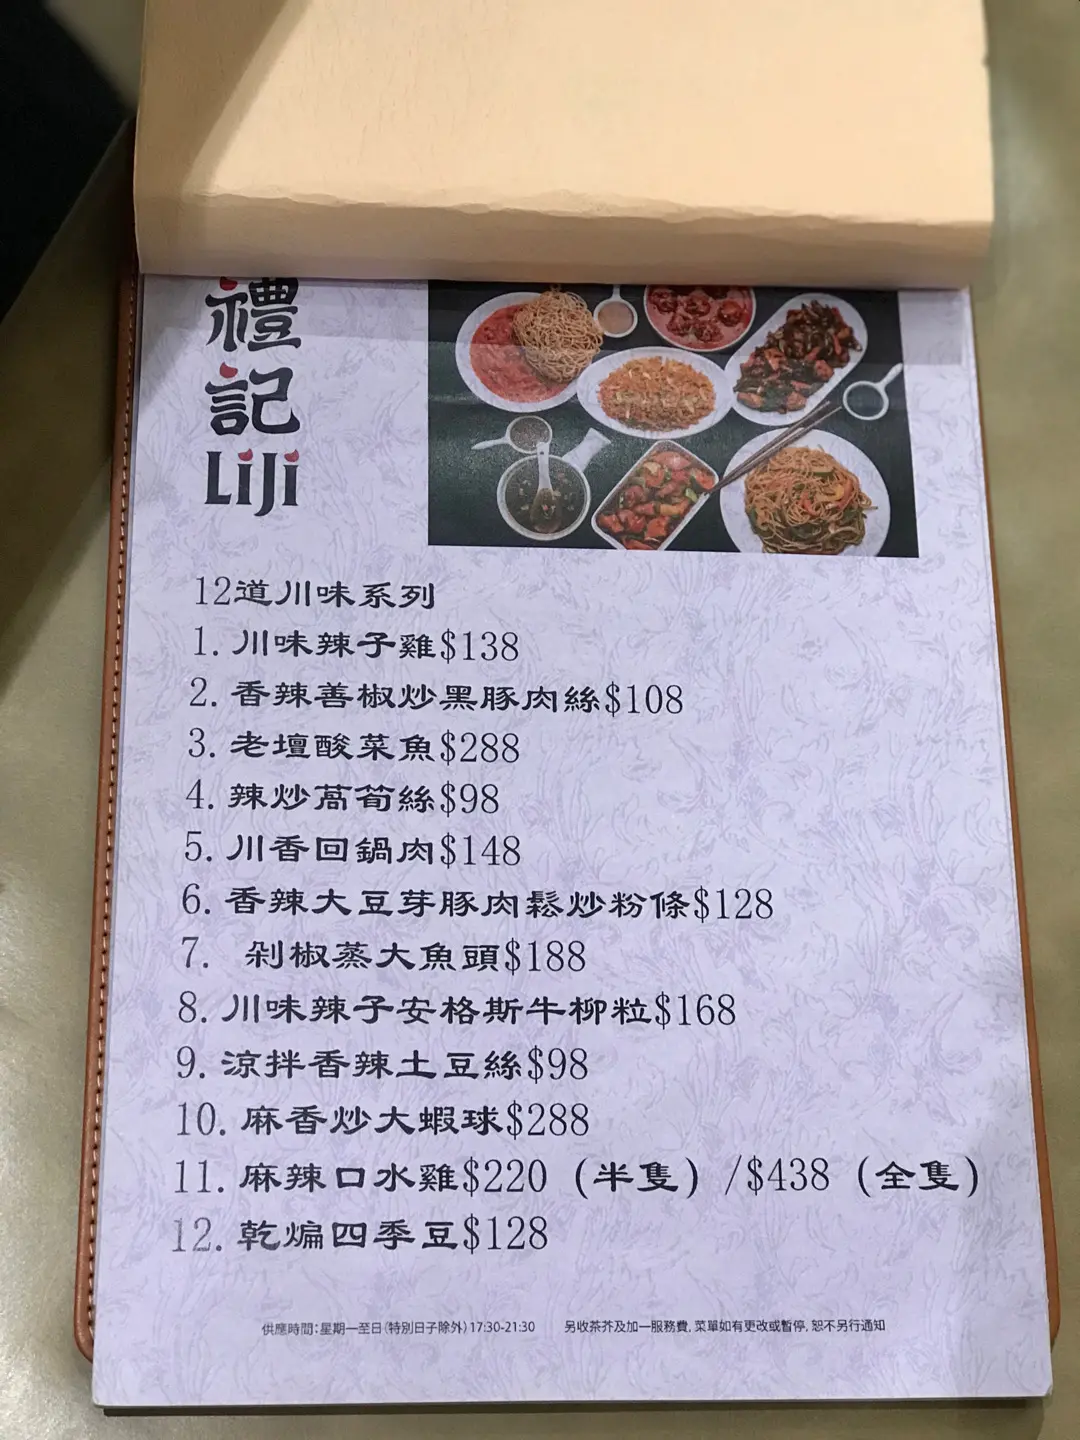 禮
記
LiJi
12道川味系列
1. 川味辣子雞$138
2. 香辣善椒炒黑豚肉絲$108
3. 老壇酸菜魚$288
4. 辣炒萵筍絲$98
5. 川香回鍋肉$148
6. 香辣大豆芽豚肉鬆炒粉條$128
7. 剁椒蒸大魚頭$188
8. 川味辣子安格斯牛柳粒$168
9. 涼拌香辣土豆絲$98
10. 麻香炒大蝦球$288
11. 麻辣口水雞$220（半隻）/$438（全隻）
12. 乾煸四季豆$128
供應時間：星期一至日（特別日子除外）17:30-21:30 另收茶芥及加一服務費, 菜單如有更改或暫停, 恕不另行通知